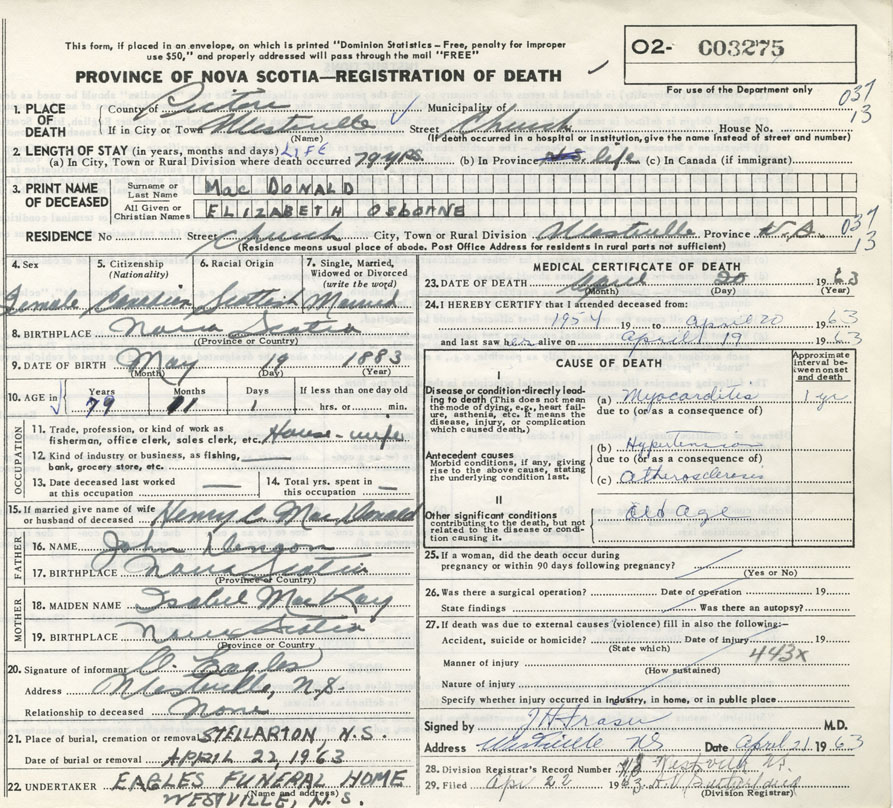 This form, if placed in an envelope, on which is printed "Dominion Statistics – Free, penalty for improper
use $50," and properly addressed will pass through the mail "FREE"
02- C03275
PROVINCE OF NOVA SCOTIA—REGISTRATION OF DEATH
For use of the Department only
1. PLACE OF DEATH County of Pictou Municipality of 037
If in City or Town Westville (Name) Street Church House No. 13
(If death occurred in a hospital or institution, give the name instead of street and number)
2. LENGTH OF STAY (in years, months and days) LIFE
(a) In City, Town or Rural Division where death occurred 79 yrs. (b) In Province life (c) In Canada (if immigrant)
3. PRINT NAME OF DECEASED Surname or Last Name MacDONALD
All Given or Christian Names ELIZABETH OSBORNE
RESIDENCE No Street Church City, Town or Rural Division Westville Province N.S. 037
13
(Residence means usual place of abode. Post Office Address for residents in rural parts not sufficient)
4. Sex Female
5. Citizenship (Nationality) Canadian
6. Racial Origin Scottish
7. Single, Married, Widowed or Divorced (write the word) Married
8. BIRTHPLACE Nova Scotia
(Province or Country)
9. DATE OF BIRTH May 19 1883
(Month) (Day) (Year)
10. AGE in Years 79 Months 11 Days 1 If less than one day old hrs. or min.
OCCUPATION
11. Trade, profession, or kind of work as fisherman, office clerk, sales clerk, etc. House-wife
12. Kind of industry or business, as fishing, bank, grocery store, etc.
13. Date deceased last worked at this occupation
14. Total yrs. spent in this occupation
15. If married give name of wife or husband of deceased Henry C. MacDonald
FATHER
16. NAME John
17. BIRTHPLACE Nova Scotia
(Province or Country)
MOTHER
18. MAIDEN NAME Isabel MacKay
19. BIRTHPLACE Nova Scotia
(Province or Country)
20. Signature of informant O. Eagles
Address Westville, N.S.
Relationship to deceased None
21. Place of burial, cremation or removal STELLARTON, N.S.
Date of burial or removal APRIL 22, 1963
22. UNDERTAKER EAGLES FUNERAL HOME
(Name and address)
WESTVILLE, N.S.
MEDICAL CERTIFICATE OF DEATH
23. DATE OF DEATH April 20 1963
(Month) (Day) (Year)
24. I HEREBY CERTIFY that I attended deceased from:
1954 19 to April 20 1963
and last saw her alive on April 19 1963
CAUSE OF DEATH
Approximate interval between onset and death
I
Disease or condition-directly leading to death (This does not mean the mode of dying, e.g., heart failure, asthenia, etc. It means the disease, injury, or complication which caused death.)
(a) Myocarditis 1 yr
due to (or as a consequence of)
Antecedent causes
Morbid conditions, if any, giving rise to the above cause, stating the underlying condition last.
(b) Hypertension
due to (or as a consequence of)
(c) Atherosclerosis
II
Other significant conditions
contributing to the death, but not related to the disease or condition causing it.
Old Age
25. If a woman, did the death occur during
pregnancy or within 90 days following pregnancy?
(Yes or No)
26. Was there a surgical operation? Date of operation 19
State findings Was there an autopsy?
27. If death was due to external causes (violence) fill in also the following:-
Accident, suicide or homicide? Date of injury 19
(State which)
443x
Manner of injury
(How sustained)
Nature of injury
Specify whether injury occurred in industry, in home, or in public place
Signed by J H Fraser M.D.
Address Westville NS Date April 21 1963
28. Division Registrar's Record Number 18 Westville N.S.
29. Filed Apr 22 1963
(Division Registrar)